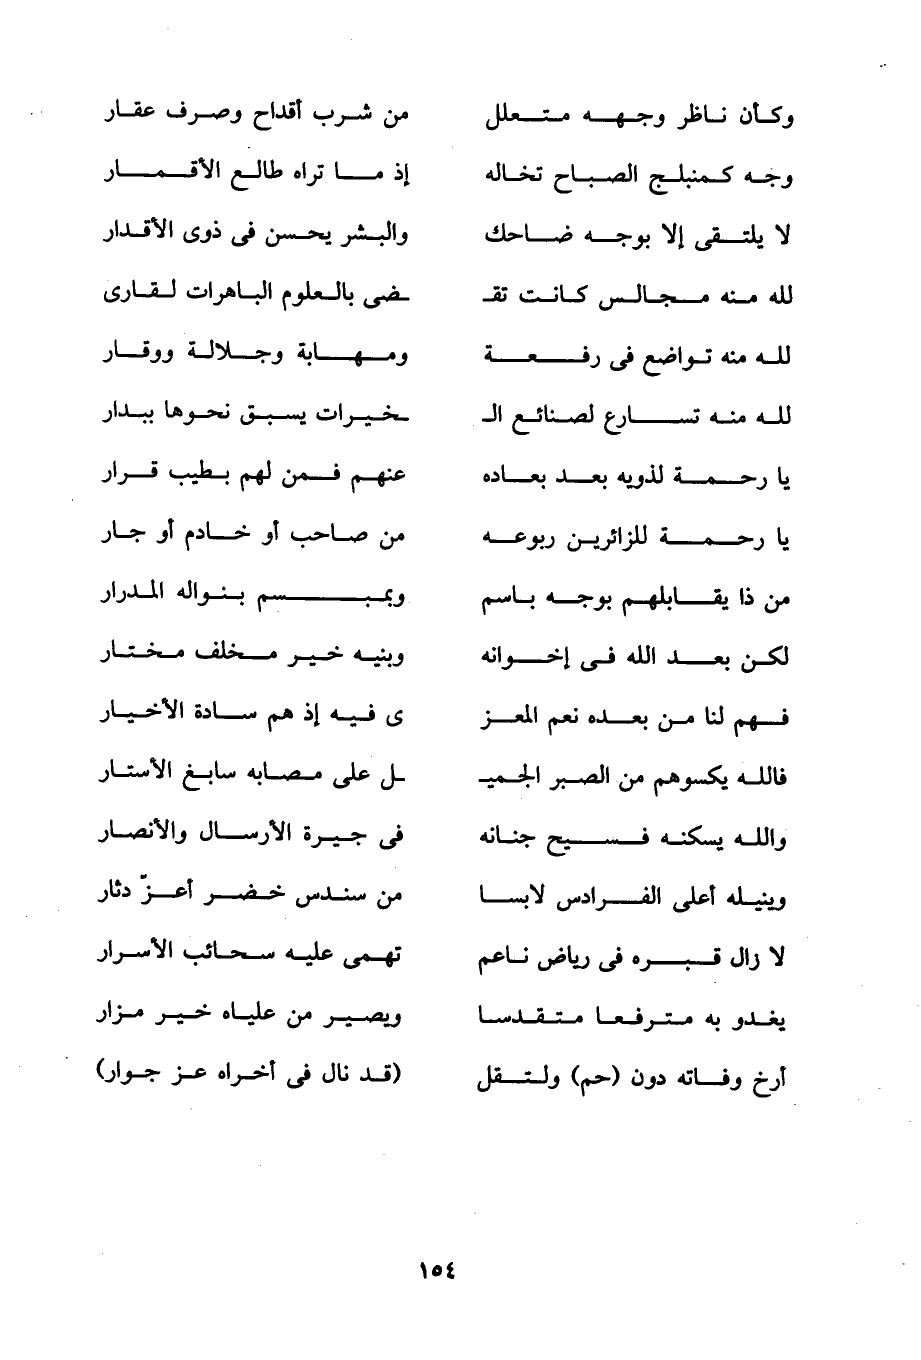 وكأن ناظر وجهه متعلل من شرب أقداح وصرف عقار
وجه كمنبلج الصباح تخاله إذ ما تراه طالع الأقمار
لا يلتقى إلا بوجه ضاحك والبشر يحسن فى ذوى الأقدار
لله منه مجالس كانت تقـ ـضى بالعلوم الباهرات لقارى
لله منه تواضع فى رفعة ومهابة وجلالة ووقار
لله منه تسارع لصنائع الـ ـخيرات يسبق نحوها ببدار
يا رحمة لذويه بعد بعاده عنهم فمن لهم بطيب قرار
يا رحمة للزائرين ربوعه من صاحب أو خادم أو جار
من ذا يقابلهم بوجه باسم ويعمهم بنواله المدرار
لكن بعد الله فى إخوانه وبنيه خير مخلف مختار
فهم لنا من بعده نعم المعز ى فيه إذ هم سادة الأخيار
فالله يكسوهم من الصبر الجميـ ـل على مصابه سابغ الأستار
والله يسكنه فسيح جنانه فى جيرة الأرسال والأنصار
وينيله أعلى الفرادس لابسا من سندس خضر أعزّ دثار
لا زال قبره فى رياض ناعم تهمى عليه سحائب الأسرار
يغدو به مترفعا متقدسا ويصير من علياه خير مزار
أرخ وفاته دون (حم) ولتقل (قد نال فى أخراه عز جوار)
١٥٤